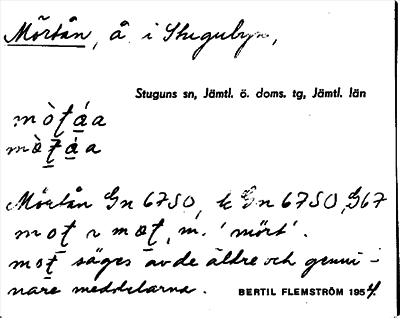 Mörtån, å i Stugubyn,
Stuguns sn, Jämtl. ö. doms. tg, Jämtl. län
mòt̠á̠a
mæ̀t̠á̠a
Mörtån Gn 6750, k Gn 6750, G67
mot̠ r mæt̠, m. 'mört'.
mot̠ säges av de äldre och genui-
nare meddelarna. BERTIL FLEMSTRÖM 1954.